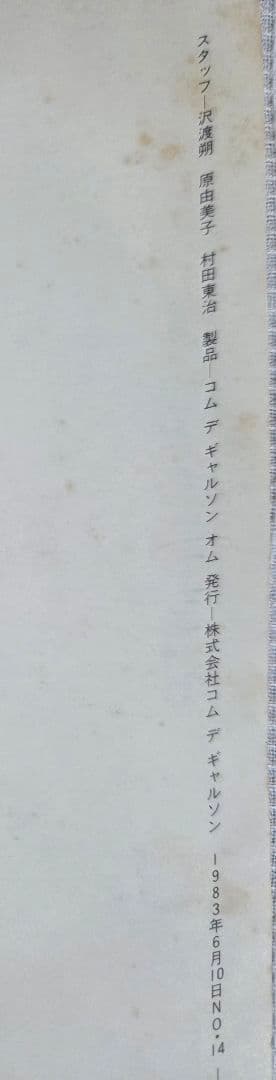 スタッフ―沢渡朔　原由美子　村田東治　製品―コム デ ギャルソン オム 発行―株式会社コム デ ギャルソン　1983年6月10日NO・14